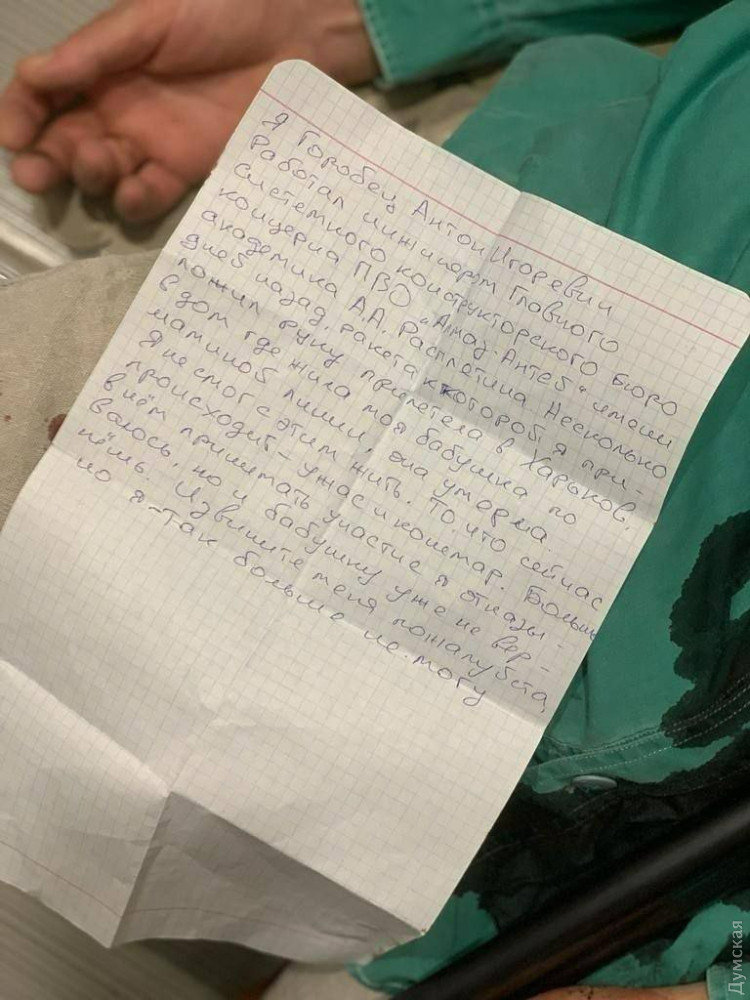 Я Горобец Антон Игоревич
Работал инжинером Главного
системного конструкторского бюро
концерна ПВО "Алмаз-Антей" имени
академика А.А. Расплетина Несколько
дней назад, ракета к которой я при-
ложил руку прилетела в Харьков,
в дом где жила моя бабушка по
маминой линии, она умерла.
Я не смог с этим жить. То, что сейчас
происходит - ужас и кошмар. Больше
в нём принимать участие я отказы-
ваюсь, но и бабушку уже не вер-
нёшь. Извините меня пожалуйста,
но я так больше не могу
Думская